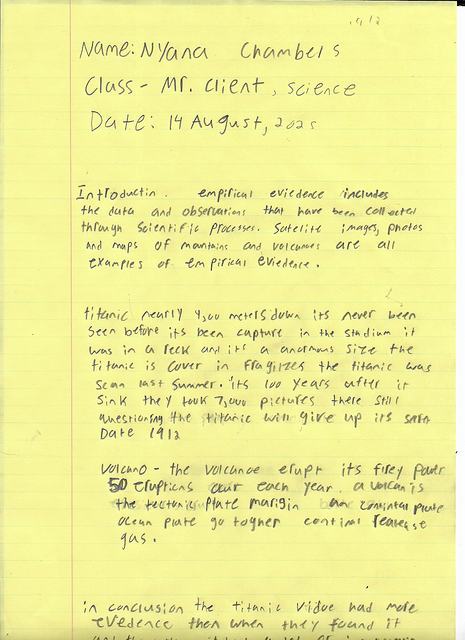 Name: Nyana Chambers
Class - Mr. Client, science
Date: 14 August, 2025
Introductin. empirical eviedence includes
the data and observations that have been collected
through scientific processes. Satelite images, photos
and maps of mountains and volcanoes are all
examples of empirical eviedence.
titanic nearly 4,00 meters down its never been
seen before its been capture in the stadium it
was in a reck and it's a anormous size the
titanic is cover in the titanic was
scan last summer. its 100 years after it
sink they took 7,000 pictures there still
questionsng the titanic will give up its
Date 1912
Volcano - the volcanoe erupt its firey power
50 eruptions ocur each year. a volcan is
the tectonic plate marigin plate
ocean plate go togher
gas.
in conclusion the titanic vidue had more
evedence then when they found it